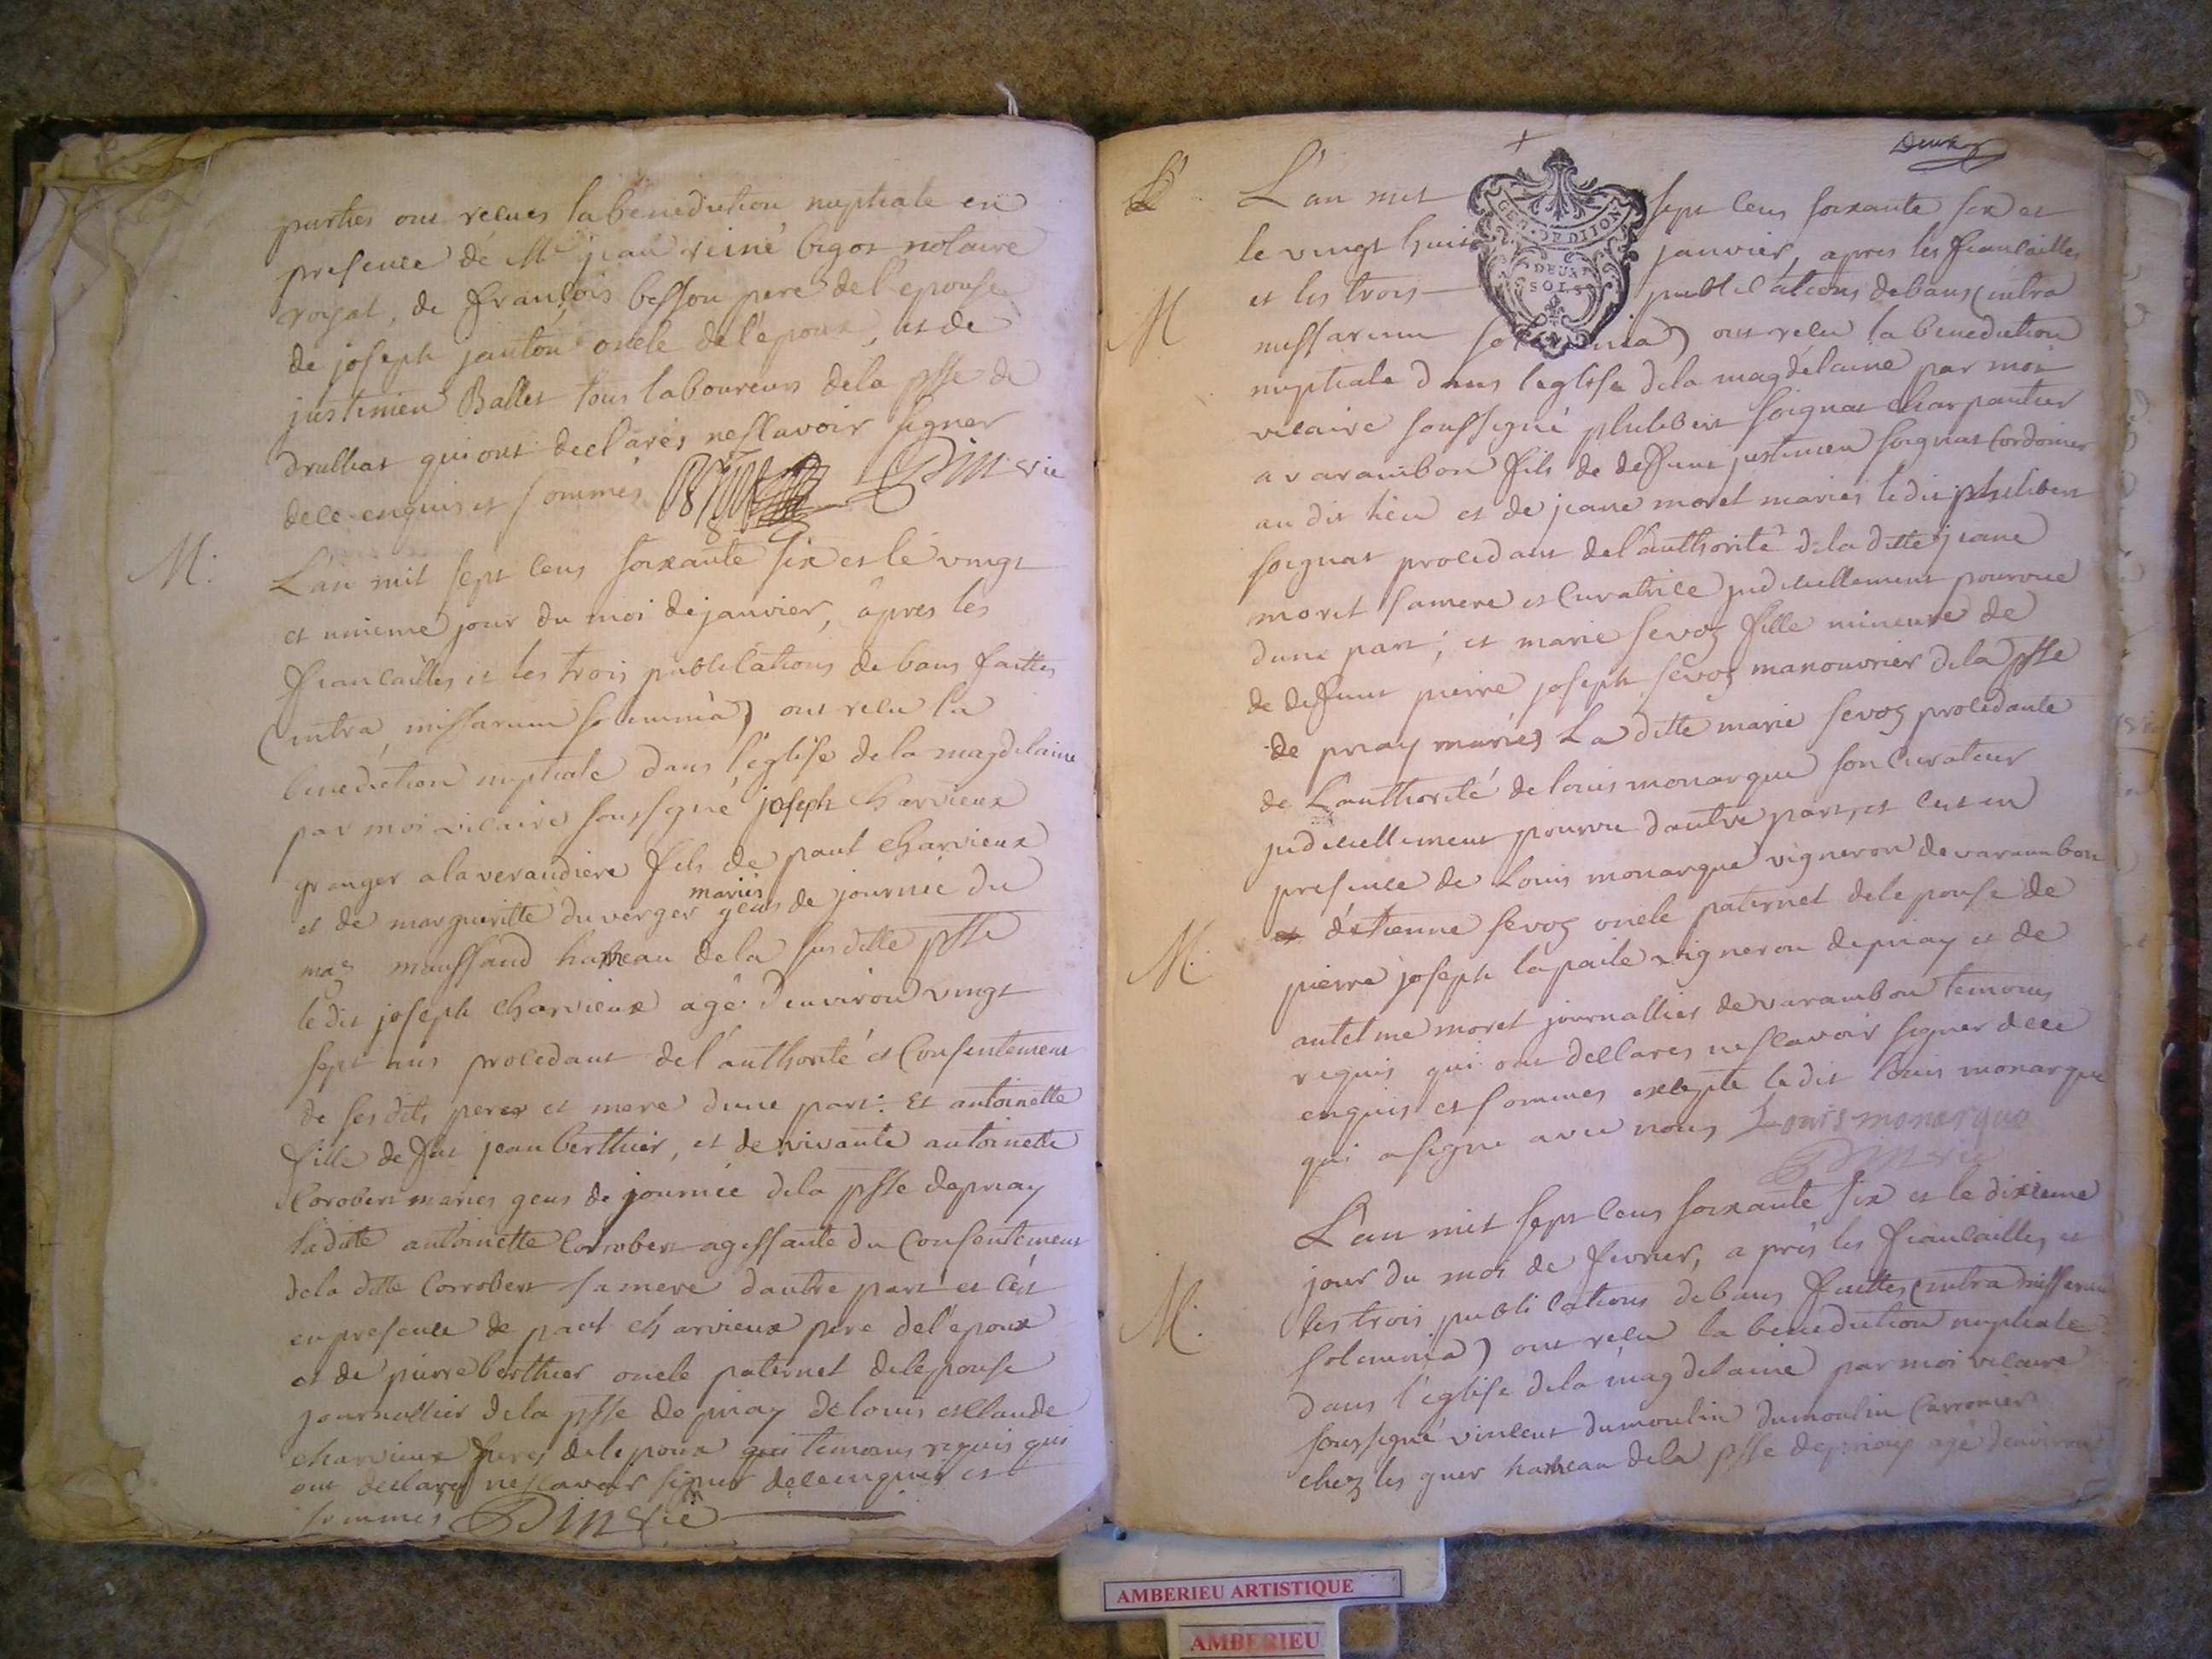 parties ont recues la benediction nuptiale en
presence de Mre jean reiné bigot notaire
royal, de françois besson pere de l'epouse
de joseph janton oncle de l'epoux, et de
justinien Ballet tous laboureurs dela psse de
druillat qui ont declarés ne scavoir signer
de ce enquis et sommés
M. L'an mil sept cens soixante six et le vingt
et unieme jour du moi de janvier, apres les
fiancailles et les trois publications de bans faittes
(intra missarum solemnia) ont recu la
benediction nuptiale dans l'eglise de la magdelaine
par moi vicaire soussigné joseph charvieux
granger a la verandiere fils de paul charvieux
et de margueritte duverger mariés gens de journée du
mas maussaud hameau de la susditte psse
le dit joseph charvieux agé d'environ vingt
sept ans procedant de l'authorité et consentement
de ses dits perer et mere d'une part. Et antoinette
fille de fut jean berthier, et de vivante antoinette
Corobert maries gens de journée dela psse de priay
la ditte antoinette Corrobert agissante du consentement
dela ditte Corrobert sa mere d'autre part et c'est
en presence de paul charvieux pere de l'epoux
et de pierre berthier oncle paternel de lepouse
journallier dela psse de priay de louis et Claude
charvieux freres de lepoux temoins requis qui
ont declarez ne scavoir signer de ce enquis et
sommés
Deux
L'an mil sept cens soixante six et
le vingt huit janvier, apres les fiancailles
GEN. DE DIJON
DEUX
SOLS
M et les trois publications de bans (intra
missarum solemnia) ont recu la benediction
nuptiale dans leglise dela magdelaine par moi
vicaire soussigné philibert soignat charpantier
a varambon fils de deffunt justinien soignat Cordonier
au dit lieu et de jeane moret mariés le dit philibert
soignat procedant de l'authorité dela ditte jeane
moret sa mere et curatrice judiciellement pourvue
dune part; et marie sevoz fille mineure de
de deffunt pierre joseph sevoz manouvrier dela psse
de priay mariés La ditte marie sevoz procedante
de L'authorité de louis monarque son curateur
judiciellement pourvu dautre part, et cest en
presence de Louis monarque vigneron de varambon
M. d'etienne sevoz oncle paternel de lepouse de
pierre joseph lapaile vigneron de priay et de
antelme moret journallier de varambon temoins
requis qui ont declares ne scavoir signer de ce
enquis et sommes excepté le dit louis monarque
qui a signe avec nous Louis monarque
L'an mil sept cens soixante six et le dixieme
jour du moi de fevrier, après les fiancailles et
M. les trois publications de bans faittes (intra missarum
solemnia) ont recu la benediction nuptiale
dans l'eglise dela magdelaine par moi vicaire
soussigné vincent dumoulin dumoulin Carronier
chez les guer hameau dela psse de priay agé d'environ
AMBERIEU ARTISTIQUE
AMBERIEU